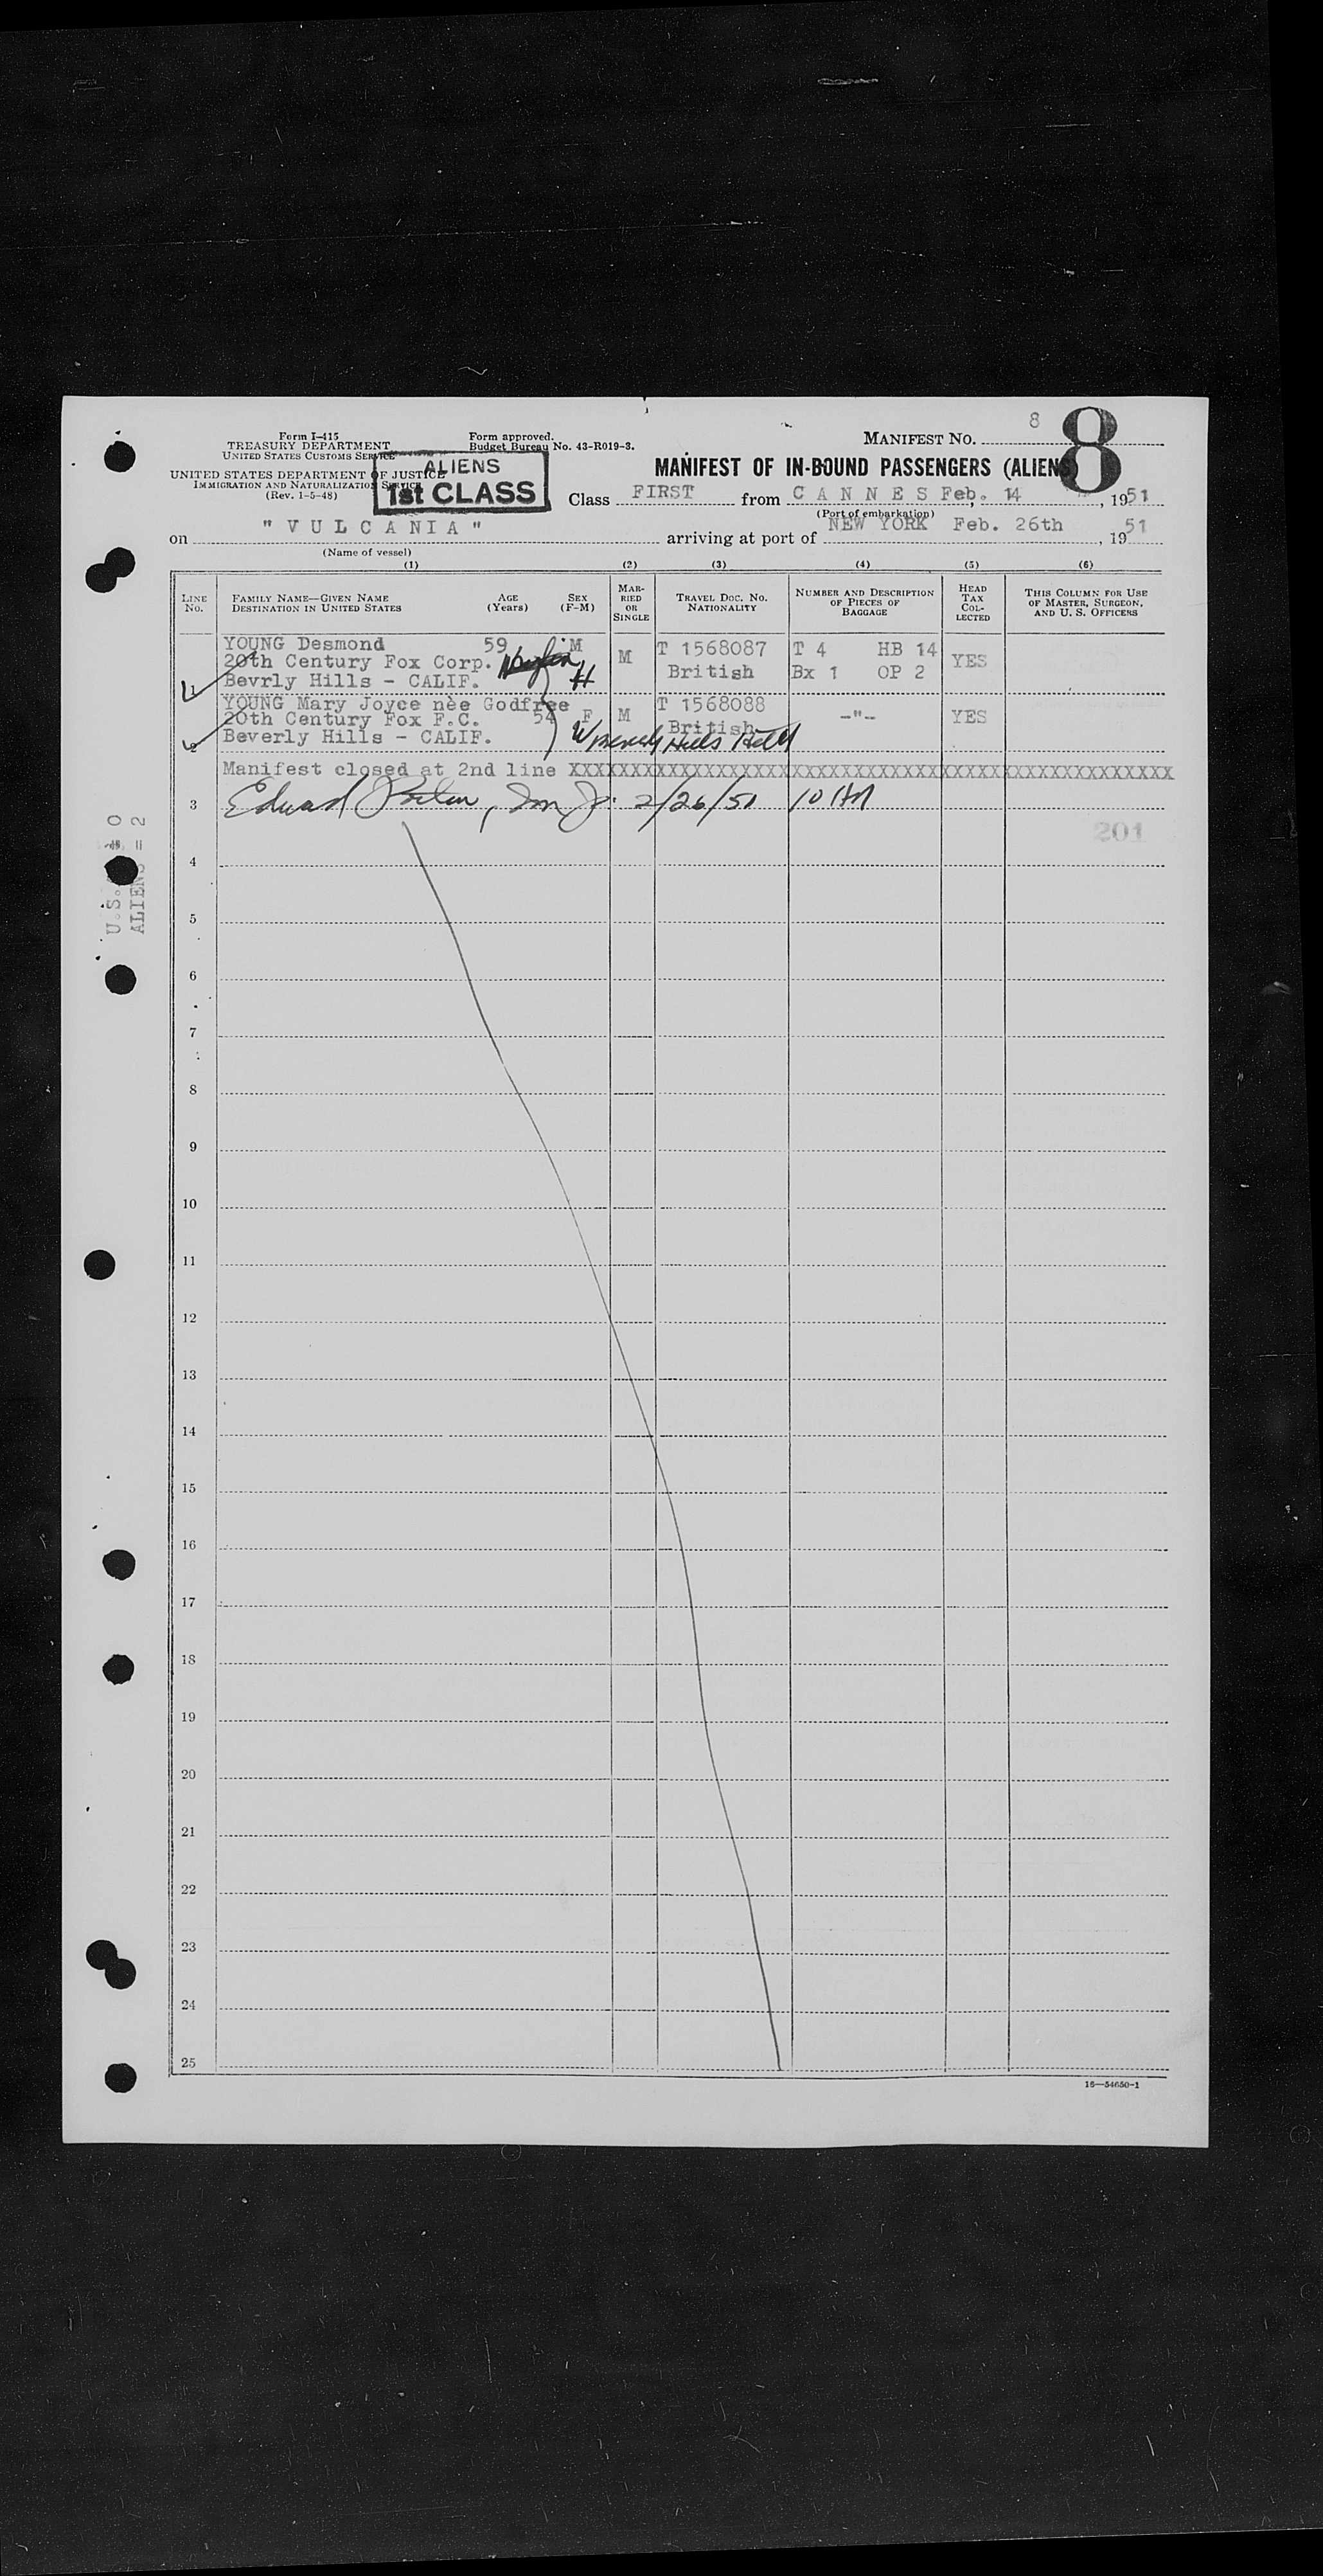 8
Form I-415
TREASURY DEPARTMENT
UNITED STATES CUSTOMS SERVICE
UNITED STATES DEPARTMENT OF JUSTICE
IMMIGRATION AND NATURALIZATION SERVICE
(Rev. 1-5-48)
Form approved.
Budget Bureau No. 43-R019-3.
MANIFEST NO. 8
ALIENS
1st CLASS
MANIFEST OF IN-BOUND PASSENGERS (ALIENS)
Class FIRST from C A N N E S Feb. 14, 1951
(Port of embarkation)
on " V U L C A N I A " arriving at port of NEW YORK Feb. 26th, 1951
(Name of vessel)
(1) (2) (3) (4) (5) (6)
LINE No.
FAMILY NAME—GIVEN NAME
DESTINATION IN UNITED STATES
AGE (Years)
SEX (F-M)
MARRIED OR SINGLE
TRAVEL DOC. NO.
NATIONALITY
NUMBER AND DESCRIPTION OF PIECES OF BAGGAGE
HEAD TAX COLLECTED
THIS COLUMN FOR USE OF MASTER, SURGEON, AND U. S. OFFICERS
YOUNG Desmond 59 M M T 1568087 T 4 HB 14 YES
20th Century Fox Corp. British Bx 1 OP 2
1 Bevrly Hills - CALIF. H
YOUNG Mary Joyce nèe Godfree T 1568088
20th Century Fox F.C. 54 F M British -"- YES
2 Beverly Hills - CALIF. W Beverly Hills Hotel
Manifest closed at 2nd line XXXXXXXXXXXXXXXXXXXXXXXXXXXXXXXXXXXXXXXXXXXXXXXXX
3 Edward 2/26/51 10 AM
201
U.S. 0
ALIENS = 2
4
5
6
7
8
9
10
11
12
13
14
15
16
17
18
19
20
21
22
23
24
25
16—54650-1